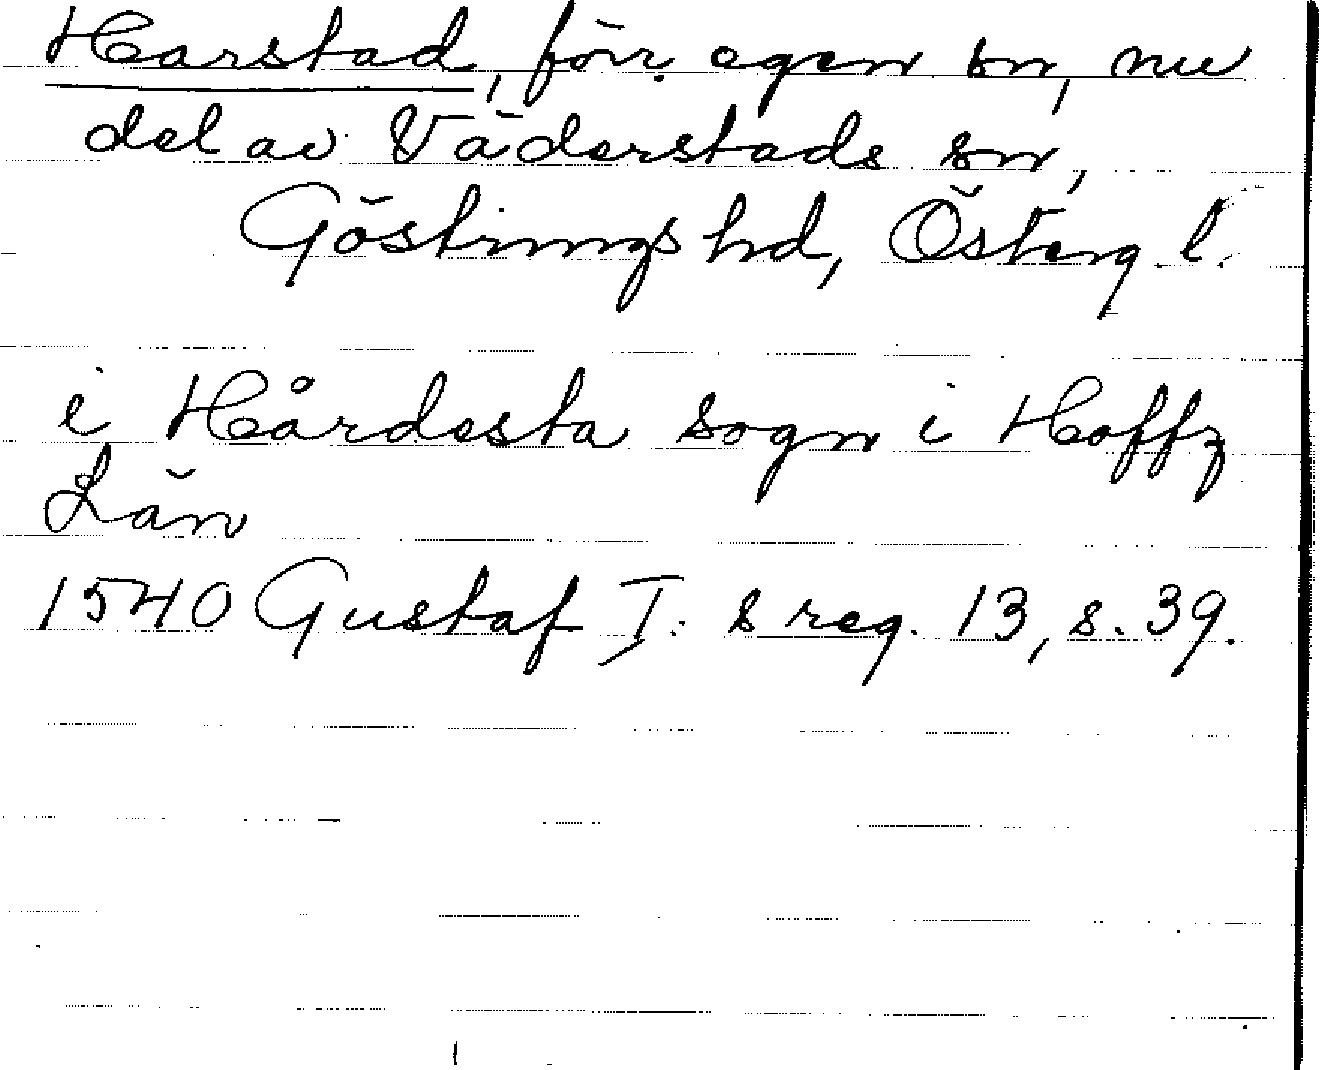 Harstad, förr. egen sn, nu
del av Väderstads sn,
Göstrings hd, Österg. l.
i Hårdesta sogn i Hoffz
Län
1540 Gustaf I:s reg. 13, s. 39.